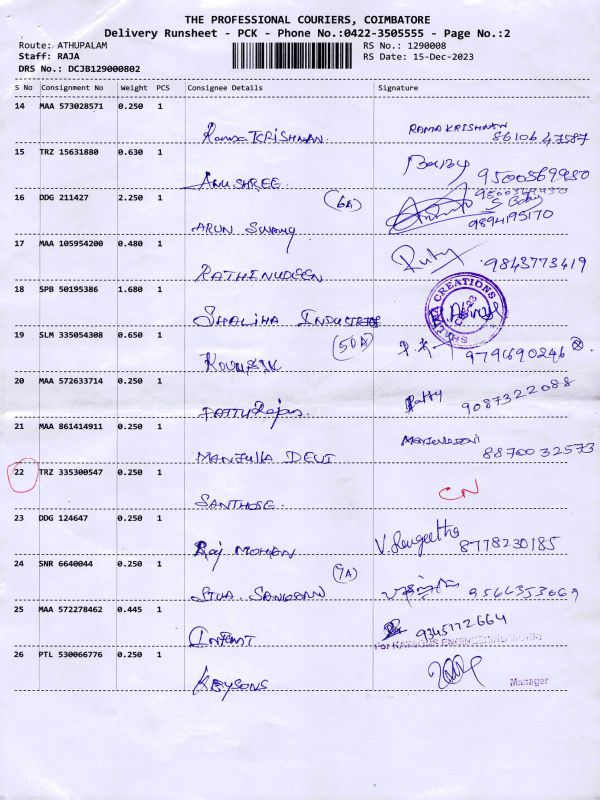 THE PROFESSIONAL COURIERS, COIMBATORE
Delivery Runsheet - PCK - Phone No.:0422-3505555 - Page No.:2
Route: ATHUPALAM RS No.: 1290008
Staff: RAJA RS Date: 15-Dec-2023
DRS No.: DCJB129000802
S No Consignment No Weight PCS Consignee Details Signature
14 MAA 573028571 0.250 1
RamaKRISHNAN. RAMA KRISHNAN 86106 47587
15 TRZ 15631880 0.630 1
ANUSHREE. 9500569950
16 DDG 211427 2.250 1 (6A)
ARUN Swamy 9894195170
17 MAA 105954200 0.480 1
RATHINUDEEN 9843773419
18 SPB 50195386 1.680 1
SHALIHA INDUSTRIES CREATIONS
19 SLM 335054308 0.650 1 (50A)
9791690246
20 MAA 572633714 0.250 1
PATTURajas. Patty 9087322088
21 MAA 861414911 0.250 1
MANJULA DEVI 88700 32573
22 TRZ 335300547 0.250 1
SANTHOSE. CN
23 DDG 124647 0.250 1
Raj MOHAN V. Sengeetha 8778230185
24 SNR 6640044 0.250 1 (9A)
SIVA. 9566353669
25 MAA 572278462 0.445 1
INFANT 9345772664
26 PTL 530066776 0.250 1
KEYSONS Manager